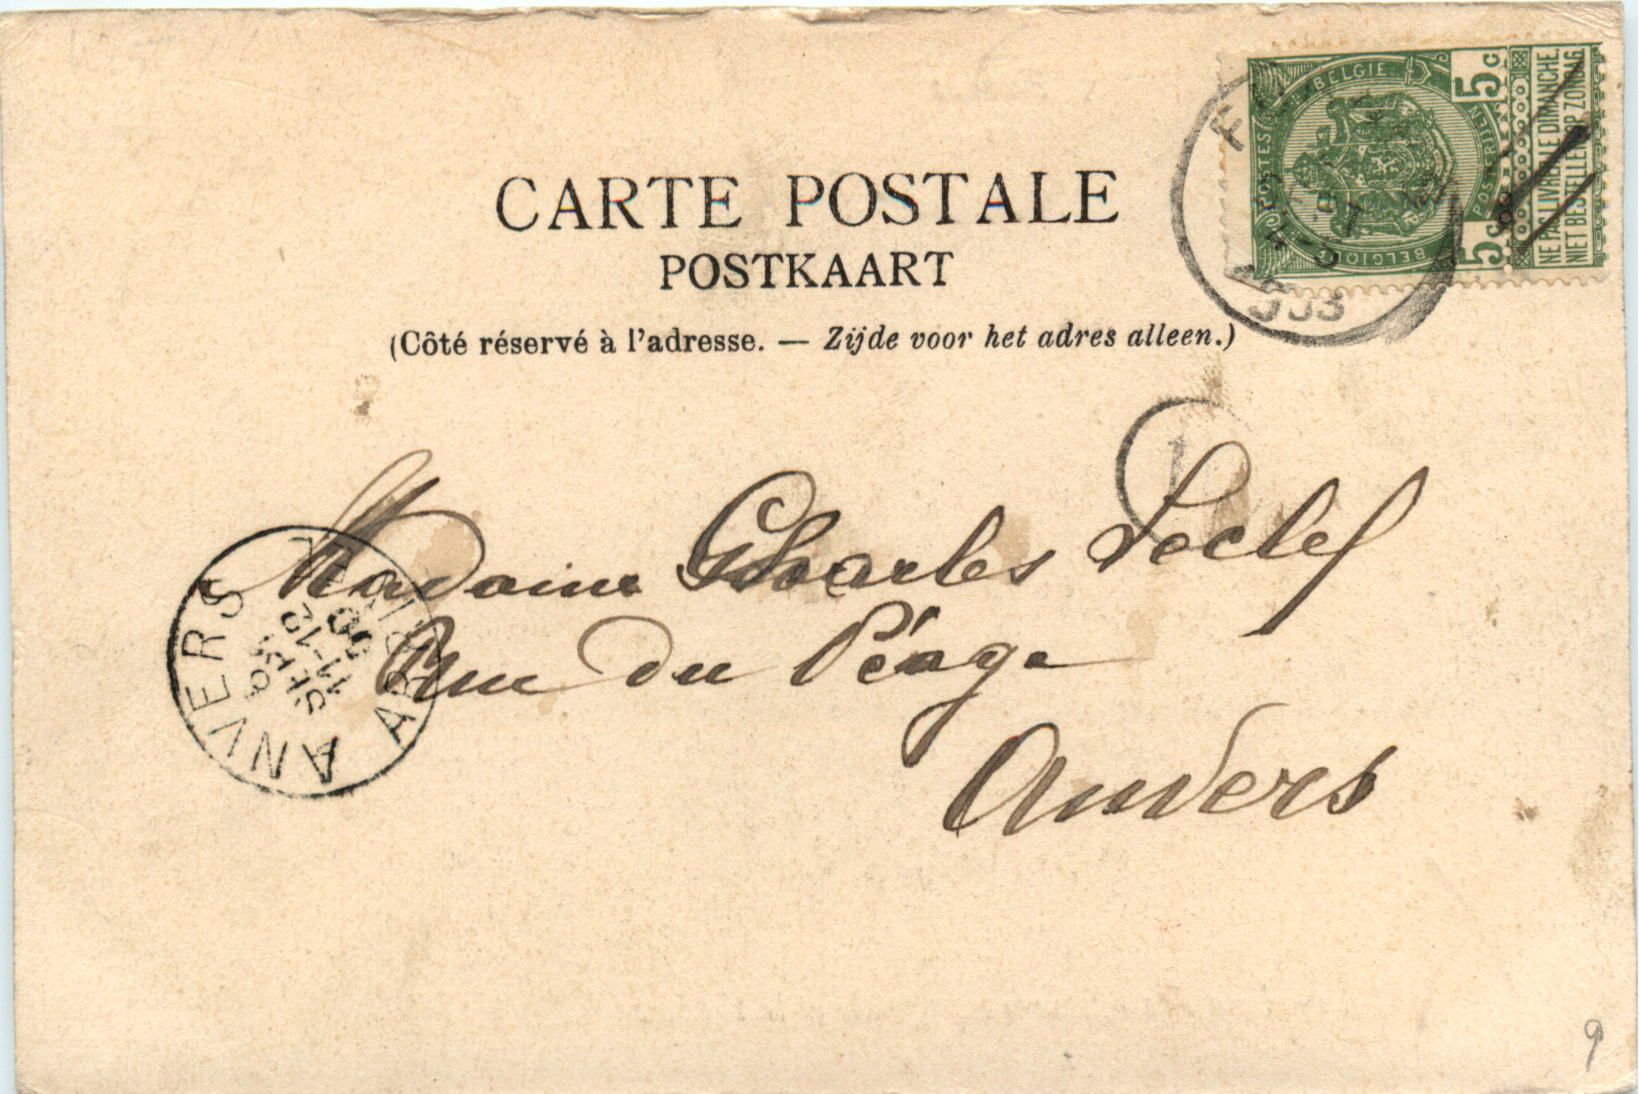 CARTE POSTALE
POSTKAART
(Côté réservé à l'adresse. — Zijde voor het adres alleen.)
BELGIE
POSTES
POSTERIJEN
BELGIQUE
5c
5c
NE PAS LIVRER LE DIMANCHE.
NIET BESTELLEN OP ZONDAG.
Madame Charles Leclef
Rue du Péage
Anvers
ANVERS
SEPT
11-12
1
9